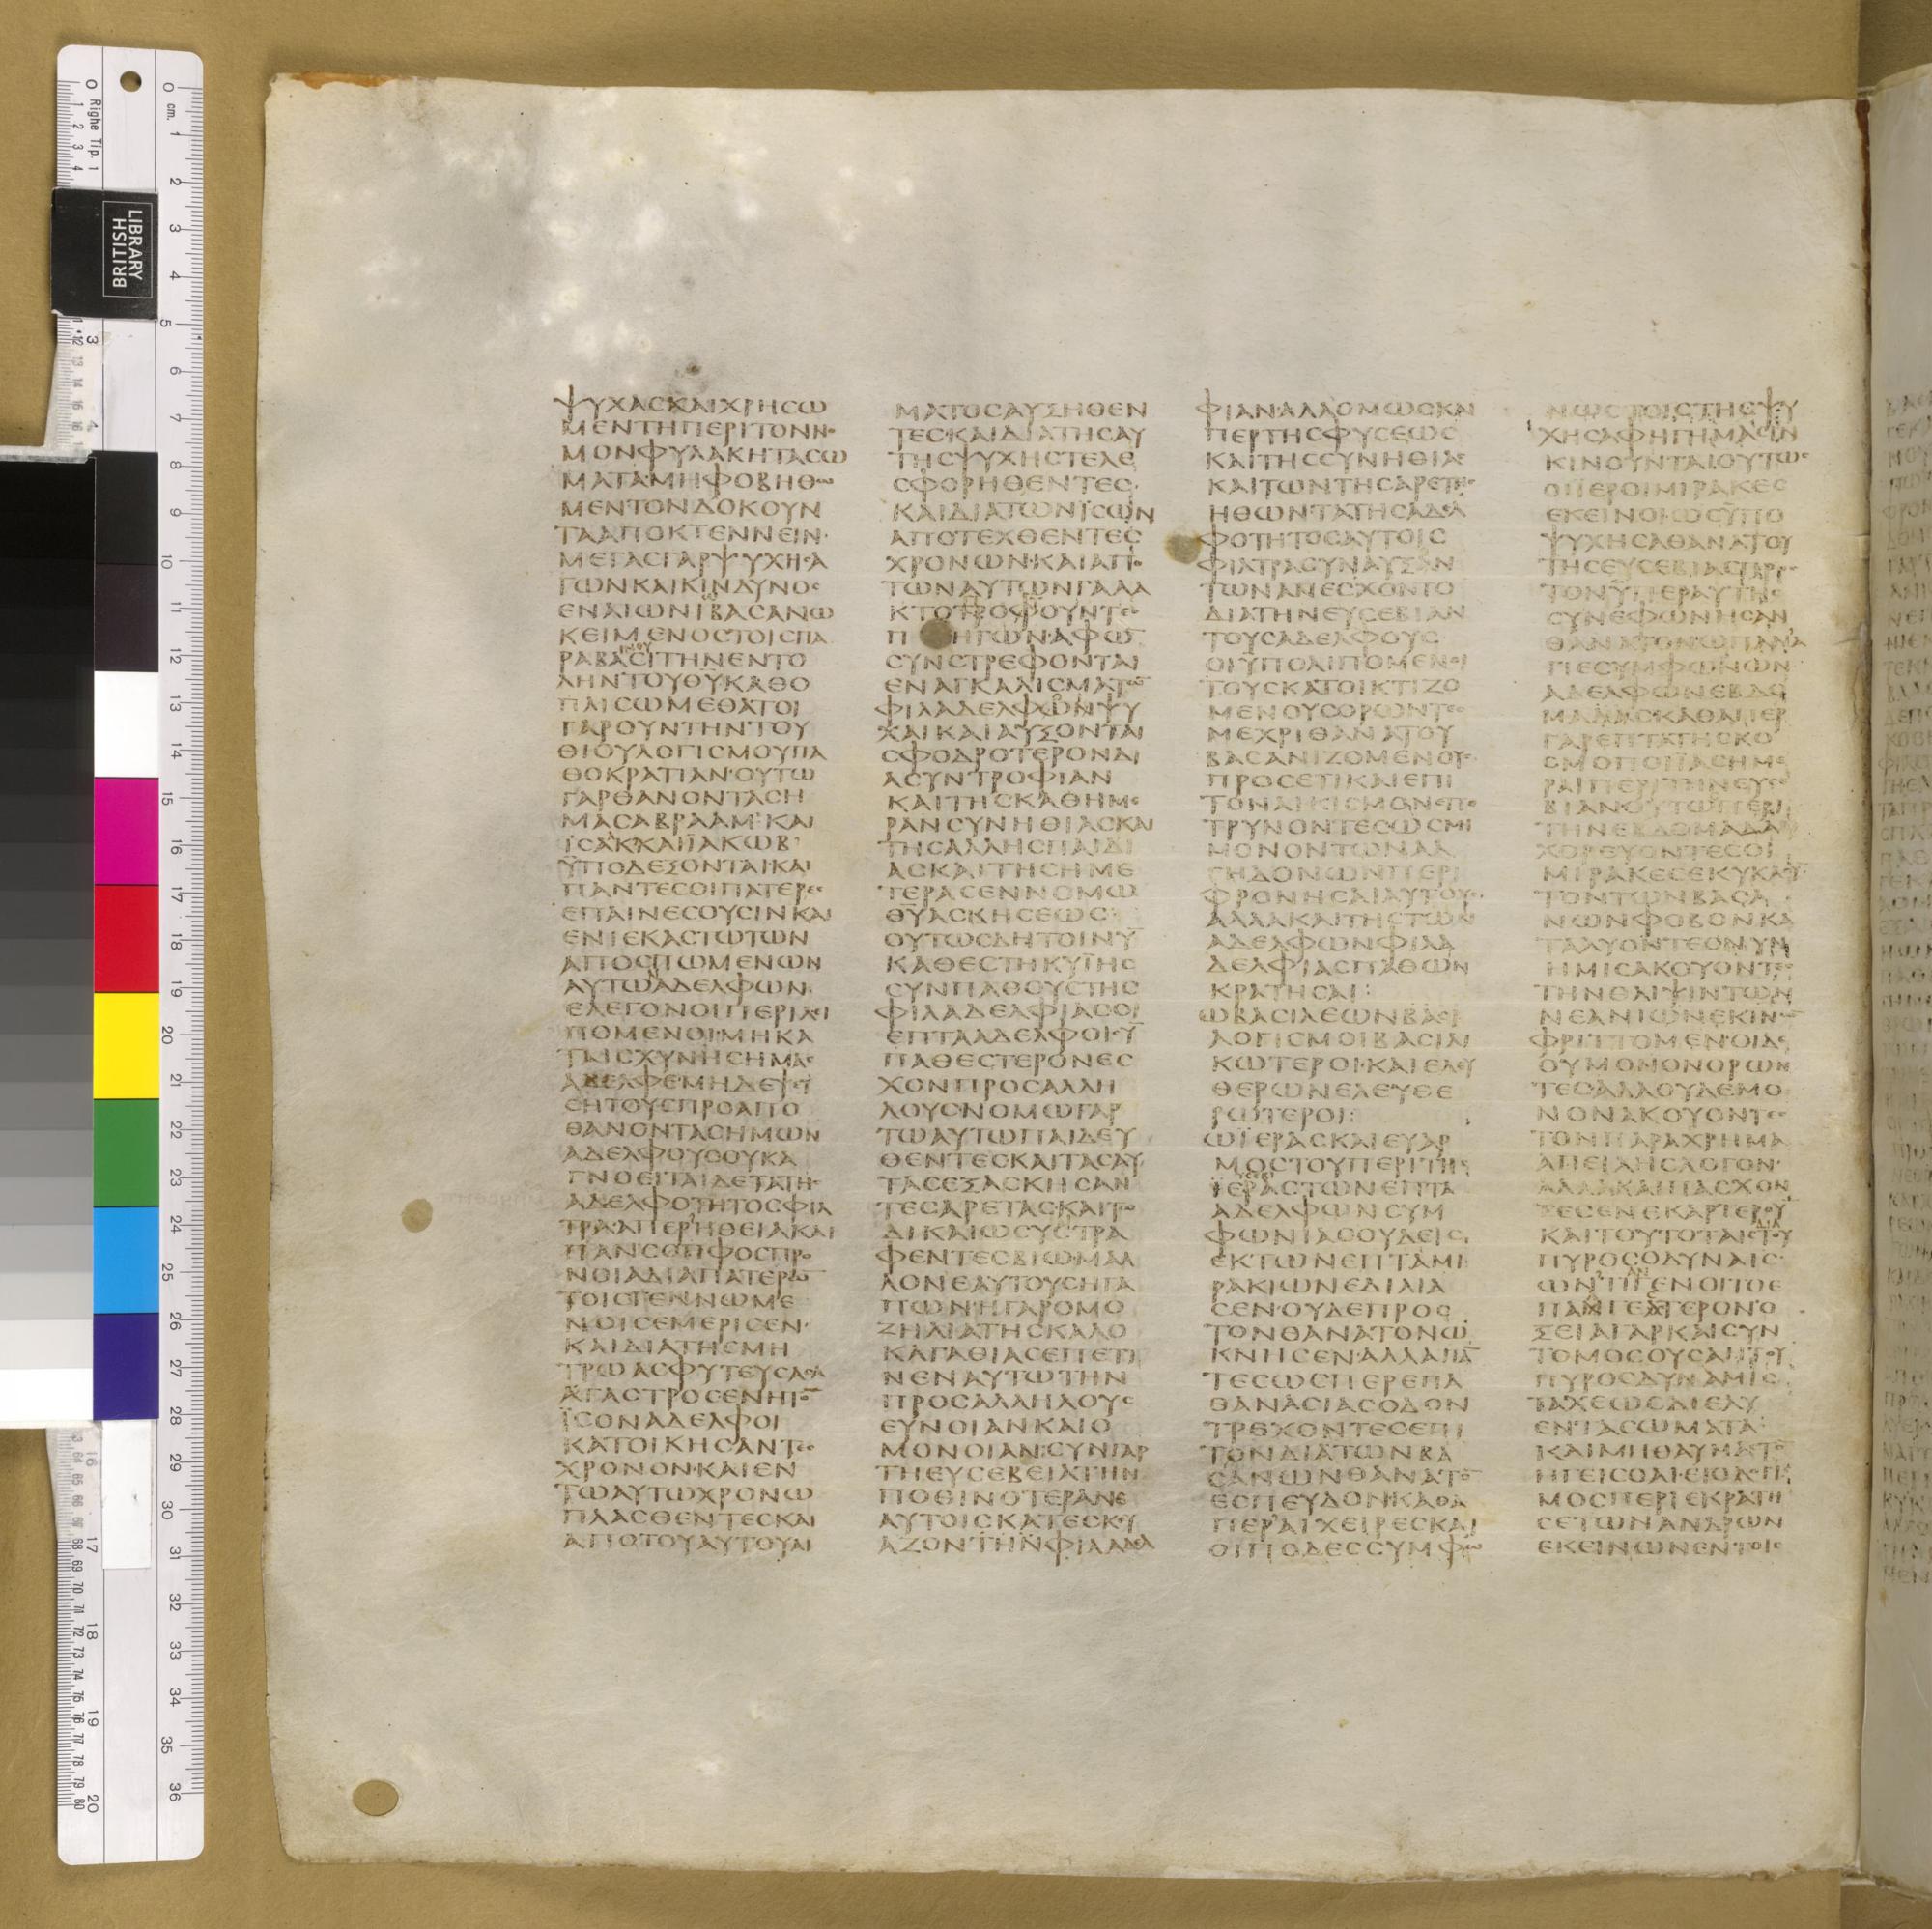 ΨΥΧΑϹΚΑΙΧΡΗϹΩ
ΜΕΝΤΗΠΕΡΙΤΟΝΝΟ
ΜΟΝΦΥΛΑΚΗΤΑϹΩ
ΜΑΤΑ·ΜΗΦΟΒΗΘΩ
ΜΕΝΤΟΝΔΟΚΟΥΝ
ΤΑΑΠΟΚΤΕΝΝΕΙΝ·
ΜΕΓΑϹΓΑΡΨΥΧΗϹΑ
ΓΩΝΚΑΙΚΙΝΔΥΝΟϹ
ΕΝΑΙΩΝΙΩΒΑϹΑΝΩ
ΚΕΙΜΕΝΟϹΤΟΙϹΠΑ
ΡΑΒΑϹΙΤΗΝΕΝΤΟ
ΛΗΝΤΟΥΘΥΚΑΘΟ
ΠΛΙϹΩΜΕΘΑΤΟΙ
ΓΑΡΟΥΝΤΗΝΤΟΥ
ΘΙΟΥΛΟΓΙϹΜΟΥΠΑ
ΘΟΚΡΑΤΙΑΝ·ΟΥΤΩ
ΓΑΡΘΑΝΟΝΤΑϹΗ
ΜΑϹΑΒΡΑΑΜ·ΚΑΙ
ΪϹΑΚΚΑΙΪΑΚΩΒ·
ΫΠΟΔΕΞΟΝΤΑΙΚΑΙ
ΠΑΝΤΕϹΟΙΠΑΤΕΡΕϹ
ΕΠΑΙΝΕϹΟΥϹΙΝΚΑΙ
ΕΝΙΕΚΑϹΤΩΤΩΝ
ΑΠΟϹΠΩΜΕΝΩΝ
ΑΥΤΩΑΔΕΛΦΩΝ
ΕΛΕΓΟΝΟΙΠΕΡΙΛΙ
ΠΟΜΕΝΟΙ·ΜΗΚΑ
ΤΑΙϹΧΥΝΗϹΗΜΑϹ
ΑΔΕΛΦΕΜΗΔΕΨΕΥ
ϹΗΤΟΥϹΠΡΟΑΠΟ
ΘΑΝΟΝΤΑϹΗΜΩΝ
ΑΔΕΛΦΟΥϹΟΥΚΑ
ΓΝΟΕΙΤΑΙΔΕΤΑΤΗϹ
ΑΔΕΛΦΟΤΗΤΟϹΦΙΛ
ΤΡΑ·ΑΠΕΡΗΘΕΙΑΚΑΙ
ΠΑΝϹΟΦΟϹΠΡΟ
ΝΟΙΑΔΙΑΠΑΤΕΡΩΝ
ΤΟΙϹΓΕΝΝΩΜΕ
ΝΟΙϹΕΜΕΡΙϹΕΝ·
ΚΑΙΔΙΑΤΗϹΜΗ
ΤΡΩΑϹΦΥΤΕΥϹΑϹΑ
ΓΑϹΤΡΟϹΕΝΗΤΟΝ
ΪϹΟΝΑΔΕΛΦΟΙ
ΚΑΤΟΙΚΗϹΑΝΤΕϹ
ΧΡΟΝΟΝ·ΚΑΙΕΝ
ΤΩΑΥΤΩΧΡΟΝΩ
ΠΛΑϹΘΕΝΤΕϹΚΑΙ
ΑΠΟΤΟΥΑΥΤΟΥΑΙ
ΜΑΤΟϹΑΥΞΗΘΕΝ
ΤΕϹ·ΚΑΙΔΙΑΤΗϹΑΥ
ΤΗϹΨΥΧΗϹΤΕΛΕ
ϹΦΟΡΗΘΕΝΤΕϹ·
ΚΑΙΔΙΑΤΩΝΪϹΩΝ
ΑΠΟΤΕΧΘΕΝΤΕϹ
ΧΡΟΝΩΝ·ΚΑΙΑΠΟ
ΤΩΝΑΥΤΩΝΓΑΛΑ
ΚΤΟΤΡΟΦΟΥΝΤΕϹ
ΠΗΓΩΝ·ΑΦΩΝ
ϹΥΝϹΤΡΕΦΟΝΤΑΙ
ΕΝΑΓΚΑΛΙϹΜΑΤΩΝ
ΦΙΛΑΔΕΛΦΩΝΨΥ
ΧΑΙΚΑΙΑΥΞΟΝΤΑΙ
ϹΦΟΔΡΟΤΕΡΟΝΔΙ
ΑϹΥΝΤΡΟΦΙΑΝ
ΚΑΙΤΗϹΚΑΘΗΜΕ
ΡΑΝϹΥΝΗΘΙΑϹΚΑΙ
ΤΗϹΑΛΛΗϹΠΑΙΔΙ
ΑϹΚΑΙΤΗϹΗΜΕ
ΤΕΡΑϹΕΝΝΟΜΩ
ΘΥΑϹΚΗϹΕΩϹ·
ΟΥΤΩϹΔΗΤΟΙΝΥ
ΚΑΘΕϹΤΗΚΥΙΗϹ
ϹΥΝΠΑΘΟΥϹΤΗϹ
ΦΙΛΑΔΕΛΦΙΑϹΟΙ
ΕΠΤΑΑΔΕΛΦΟΙ·Ϋ
ΠΑΘΕϹΤΕΡΟΝΕϹ
ΧΟΝΠΡΟϹΑΛΛΗ
ΛΟΥϹ·ΝΟΜΩΓΑΡ
ΤΩΑΥΤΩΠΑΙΔΕΥ
ΘΕΝΤΕϹΚΑΙΤΑϹΑΥ
ΤΑϹΕΞΑϹΚΗϹΑΝ
ΤΕϹΑΡΕΤΑϹΚΑΙΤΩ
ΔΙΚΑΙΩϹΥϹΤΡΑ
ΦΕΝΤΕϹΒΙΩΜΑΛ
ΛΟΝΕΑΥΤΟΥϹΗΓΑ
ΠΩΝ·ΗΓΑΡΟΜΟ
ΖΗΛΙΑΤΗϹΚΑΛΟ
ΚΑΓΑΘΙΑϹΕΠΕΤΙ
ΝΕΝΑΥΤΩΤΗΝ
ΠΡΟϹΑΛΛΗΛΟΥϹ
ΕΥΝΟΙΑΝΚΑΙΟ
ΜΟΝΟΙΑΝ:ϹΥΝΓΑΡ
ΤΗΕΥϹΕΒΕΙΑΤΗΝ
ΠΟΘΙΝΟΤΕΡΑΝΕ
ΑΥΤΟΙϹΚΑΤΕϹΚΥ
ΑΖΟΝΤΗΝΦΙΛΑΔΕΛ
ΦΙΑΝ·ΑΛΛΟΜΩϹΚΑΙ
ΠΕΡΤΗϹΦΥϹΕΩϹ
ΚΑΙΤΗϹϹΥΝΗΘΙΑϹ
ΚΑΙΤΩΝΤΗϹΑΡΕΤΗϹ
ΗΘΩΝΤΑΤΗϹΑΔΕΛ
ΦΟΤΗΤΟϹΑΥΤΟΙϹ
ΦΙΛΤΡΑϹΥΝΑΥΞΑΝ
ΤΩΝΑΝΕϹΧΟΝΤΟ
ΔΙΑΤΗΝΕΥϹΕΒΙΑΝ
ΤΟΥϹΑΔΕΛΦΟΥϹ
ΟΙΫΠΟΛΙΠΟΜΕΝΟΙ
ΤΟΥϹΚΑΤΟΙΚΤΙΖΟ
ΜΕΝΟΥϹΟΡΩΝΤΕϹ
ΜΕΧΡΙΘΑΝΑΤΟΥ
ΒΑϹΑΝΙΖΟΜΕΝΟΥϹ
ΠΡΟϹΕΤΙΚΑΙΕΠΙ
ΤΟΝΑΙΚΙϹΜΟΝΕΠΟ
ΤΡΥΝΟΝΤΕϹΩϹΜΗ
ΜΟΝΟΝΤΩΝΑΛ
ΓΗΔΟΝΩΝΠΕΡΙ
ΦΡΟΝΗϹΑΙΑΥΤΟΥϹ·
ΑΛΛΑΚΑΙΤΗϹΤΩΝ
ΑΔΕΛΦΩΝΦΙΛΑ
ΔΕΛΦΙΑϹΠΑΘΩΝ
ΚΡΑΤΗϹΑΙ:
ΩΒΑϹΙΛΕΩΝΒΑϹΙ
ΛΟΓΙϹΜΟΙΒΑϹΙΛΙ
ΚΩΤΕΡΟΙ·ΚΑΙΕΛΕΥ
ΘΕΡΩΝΕΛΕΥΘΕ
ΡΩΤΕΡΟΙ:
ΩΪΕΡΑϹΚΑΙΕΥΑΡ
ΜΟϹΤΟΥΠΕΡΙΤΗϹ
ΪΕΡΑϹΤΩΝΕΠΤΑ
ΑΔΕΛΦΩΝϹΥΜ
ΦΩΝΙΑϹΟΥΔΕΙϹ
ΕΚΤΩΝΕΠΤΑΜΙ
ΡΑΚΙΩΝΕΔΙΛΙΑ
ϹΕΝ·ΟΥΔΕΠΡΟϹ
ΤΟΝΘΑΝΑΤΟΝΩ
ΚΝΗϹΕΝ·ΑΛΛΑΠΑΝ
ΤΕϹΩϹΠΕΡΕΠΑ
ΘΑΝΑϹΙΑϹΟΔΟΝ
ΤΡΕΧΟΝΤΕϹΕΠΙ
ΤΟΝΔΙΑΤΩΝΒΑ
ϹΑΝΩΝΘΑΝΑΤΟΝ
ΕϹΠΕΥΔΟΝ·ΚΑΘΑ
ΠΕΡΑΙΧΕΙΡΕϹΚΑΙ
ΟΙΠΟΔΕϹϹΥΜΦΩ
ΝΩϹΤΟΙϹΤΗϹΨΥ
ΧΗϹΑΦΗΓΗΜΑϹΙΝ
ΚΙΝΟΥΝΤΑΙΟΥΤΩϹ
ΟΙΪΕΡΟΙΜΙΡΑΚΕϹ
ΕΚΕΙΝΟΙΩϹΫΠΟ
ΨΥΧΗϹΑΘΑΝΑΤΟΥ
ΤΗϹΕΥϹΕΒΙΑϹΠΡΟϹ
ΤΟΝΫΠΕΡΑΥΤΗϹ
ϹΥΝΕΦΩΝΗϹΑΝ
ΘΑΝΑΤΟΝ·ΩΠΑΝΑ
ΓΙΕϹΥΜΦΩΝΩΝ
ΑΔΕΛΦΩΝΕΒΔΟ
ΜΑϹΚΑΘΑΠΕΡ
ΓΑΡΕΠΤΑΤΗϹΚΟ
ϹΜΟΠΟΙΪΑϹΗΜΕ
ΡΑΙΠΕΡΙΤΗΝΕΥϹΕ
ΒΙΑΝΟΥΤΩΠΕΡΙ
ΤΗΝΕΒΔΟΜΑΔΑ
ΧΟΡΕΥΟΝΤΕϹΟΙ
ΜΙΡΑΚΕϹΕΚΥΚΛΟΥ
ΤΟΝΤΩΝΒΑϹΑ
ΝΩΝΦΟΒΟΝΚΑ
ΤΑΛΥΟΝΤΕϹΝΥΝ
ΗΜΙϹΑΚΟΥΟΝΤΕϹ
ΤΗΝΘΛΙΨΙΝΤΩΝ
ΝΕΑΝΙΩΝΕΚΙΝΩΝ
ΦΡΙΤΤΟΜΕΝ·ΟΙΔΕ
ΟΥΜΟΝΟΝΟΡΩΝ
ΤΕϹΑΛΛΟΥΔΕΜΟ
ΝΟΝΑΚΟΥΟΝΤΕϹ
ΤΟΝΠΑΡΑΧΡΗΜΑ
ΑΠΕΙΛΗϹΛΟΓΟΝ·
ΑΛΛΑΚΑΙΠΑϹΧΟΝ
ΤΕϹΕΝΕΚΑΡΤΕΡΟΥ
ΚΑΙΤΟΥΤΟΤΑΙϹΤΟΥ
ΠΥΡΟϹΟΔΥΝΑΙϹ·
ΩΝΤΙΓΕΝΟΙΤΟΕ
ΠΑΛΓΕϹΤΕΡΟΝ·Ο
ΞΕΙΑΓΑΡΚΑΙϹΥΝ
ΤΟΜΟϹΟΥϹΑΗΤΟΥ
ΠΥΡΟϹΔΥΝΑΜΙϹ
ΤΑΧΕΩϹΔΙΕΛΥ
ΕΝΤΑϹΩΜΑΤΑ:
ΚΑΙΜΗΘΑΥΜΑϹΤΟΝ
ΗΓΕΙϹΘΑΙ·ΕΙΟΛΟΓΙϹ
ΜΟϹΠΕΡΙΕΚΡΑΤΗ
ϹΕΤΩΝΑΝΔΡΩΝ
ΕΚΕΙΝΩΝΕΝΤΟΙϹ
BRITISH
LIBRARY
Righe Tip. 1
cm.